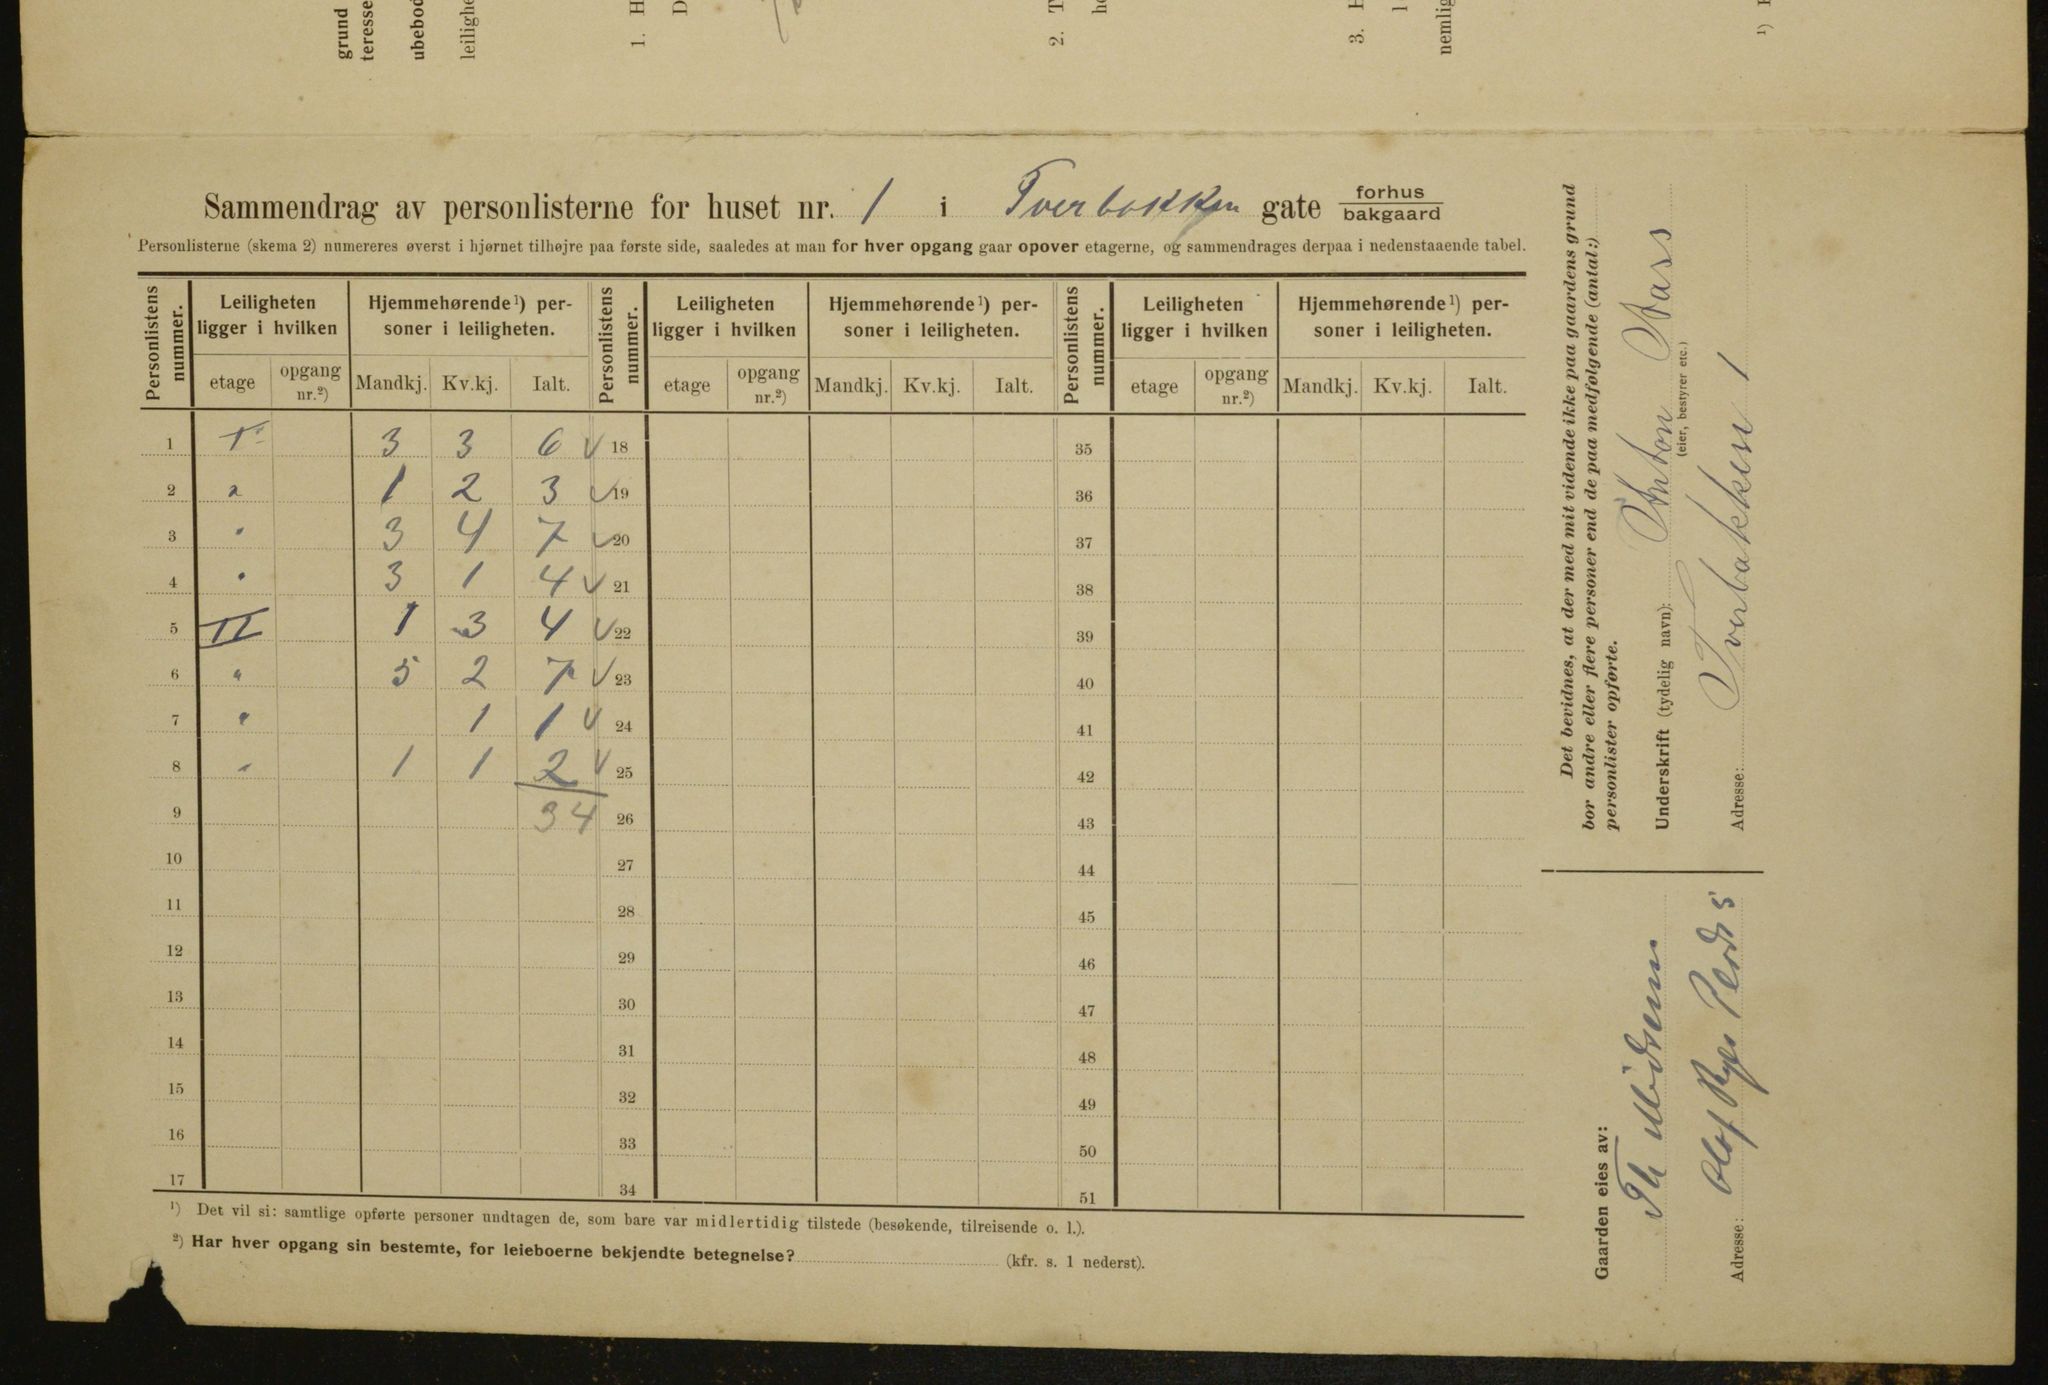 grund
teresse
ubebod
leilighe
1. H
D
2. T
he
3. H
l
nemlig
¹)
Sammendrag av personlisterne for huset nr. 1 i Tverbakken gate forhus
bakgaard
Personlisterne (skema 2) numereres øverst i hjørnet tilhøjre paa første side, saaledes at man for hver opgang gaar opover etagerne, og sammendrages derpaa i nedenstaaende tabel.
Personlistens nummer. Leiligheten ligger i hvilken Hjemmehørende¹) personer i leiligheten. Personlistens nummer. Leiligheten ligger i hvilken Hjemmehørende¹) personer i leiligheten. Personlistens nummer. Leiligheten ligger i hvilken Hjemmehørende¹) personer i leiligheten.
etage opgang nr.²) Mandkj. Kv.kj. Ialt. etage opgang nr.²) Mandkj. Kv.kj. Ialt. etage opgang nr.²) Mandkj. Kv.kj. Ialt.
1 I 3 3 6 ✓ 18 35
2 " 1 2 3 ✓ 19 36
3 " 3 4 7 ✓ 20 37
4 " 3 1 4 ✓ 21 38
5 II 1 3 4 ✓ 22 39
6 " 5 2 7 ✓ 23 40
7 " 1 1 ✓ 24 41
8 " 1 1 2 ✓ 25 42
9 34 26 43
10 27 44
11 28 45
12 29 46
13 30 47
14 31 48
15 32 49
16 33 50
17 34 51
¹) Det vil si: samtlige opførte personer undtagen de, som bare var midlertidig tilstede (besøkende, tilreisende o. l.).
²) Har hver opgang sin bestemte, for leieboerne bekjendte betegnelse? (kfr. s. 1 nederst).
Det bevidnes, at der med mit vidende ikke paa gaardens grund
bor andre eller flere personer end de paa medfølgende (antal:)
personlister opførte.
Underskrift (tydelig navn): Anton Aass
(eier, bestyrer etc.)
Adresse: Tverbakken 1
Gaarden eies av:
Th
Adresse: Olaf Ryes Plads 5